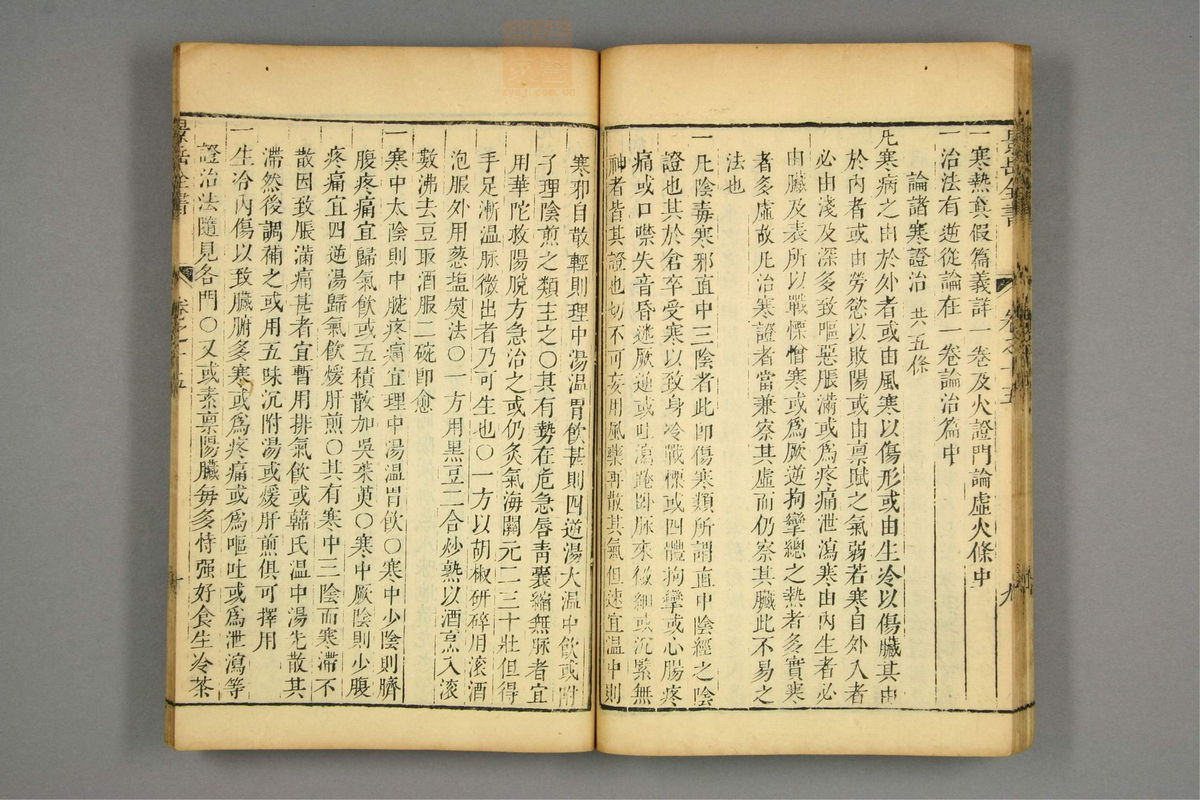 一寒熱真假篇義詳一卷及火證門論虛火條中
一治法有逆從論在一卷論治篇中
論諸寒證治 共五條
凡寒病之由於外者或由風寒以傷形或由生冷以傷臟其由
於內者或由勞慾以敗陽或由禀賦之氣弱若寒自外入者
必由淺及深多致嘔惡脹滿或為疼痛泄瀉寒由內生者必
由臟及表所以戰慄憎寒或為厥逆拘攣總之熱者多實寒
者多虛故凡治寒證者當兼察其虛而仍察其臟此不易之
法也
一凡陰毒寒邪直中三陰者此即傷寒類所謂直中陰經之陰
證也其於倉卒受寒以致身冷戰慄或四體拘攣或心腸疼
痛或口噤失音昏迷厥逆或吐瀉踡臥脉來微細或沉緊無
神者皆其證也切不可妄用風藥再散其氣但速宜溫中則
寒邪自散輕則理中湯溫胃飲甚則四逆湯大溫中飲或附
子理陰煎之類主之〇其有勢在危急唇青囊縮無脉者宜
用華陀救陽脫方急治之或仍灸氣海關元二三十壯但得
手足漸溫脉微出者乃可生也〇一方以胡椒研碎用滾酒
泡服外用葱塩熨法〇一方用黑豆二合炒熟以酒烹入滾
數沸去豆取酒服二碗即愈
一寒中太陰則中脘疼痛宜理中湯溫胃飲〇寒中少陰則臍
腹疼痛宜歸氣飲或五積散加吳茱萸〇寒中厥陰則少腹
疼痛宜四逆湯歸氣飲煖肝煎〇其有寒中三陰而寒滯不
散因致脹滿痛甚者宜暫用排氣飲或韓氏溫中湯先散其
滯然後調補之或用五味沉附湯或煖肝煎俱可擇用
一生冷內傷以致臟腑多寒或為疼痛或為嘔吐或為泄瀉等
證治法隨見各門〇又或素禀陽臟每多恃强好食生冷茶